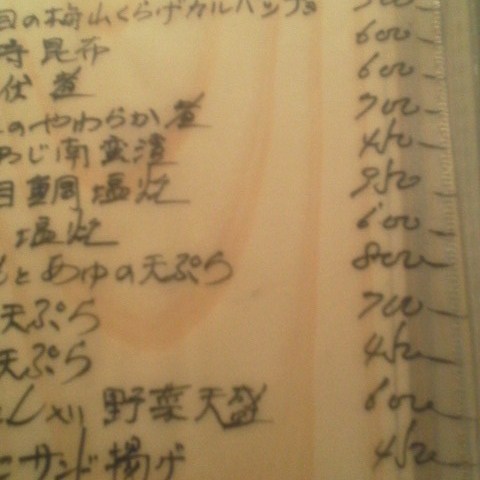 目の梅山くらげカルパッチョ
時昆布 600-
煮 600-
のやわらか煮 700-
あじ南蛮漬 450-
目鯛塩焼 950-
塩焼 600-
とあゆの天ぷら 800-
天ぷら 700-
天ぷら 450-
野菜天盛 600-
サンド揚げ 450-